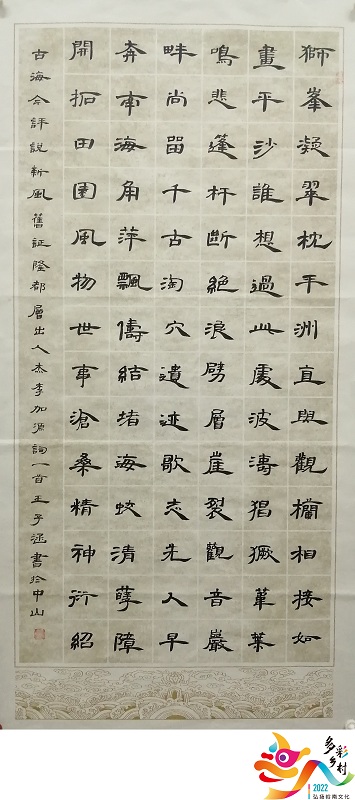 獅峯凝翠枕平洲直與觀欄相接如
畫平沙誰想過此處波濤猖獗葦葉
鳴悲蓬杆斷絕浪劈層崖裂觀音巖
畔尚留千古淘穴遺迹歌志先人早
奔南海角萍飄儔結堵海蚊清孽障
開拓田園風物世事滄桑精神衍紹
古海今評説新風舊証隆都層出人杰李加源詞一首王子涵書於中山
多彩乡村
2022
弘扬岭南文化